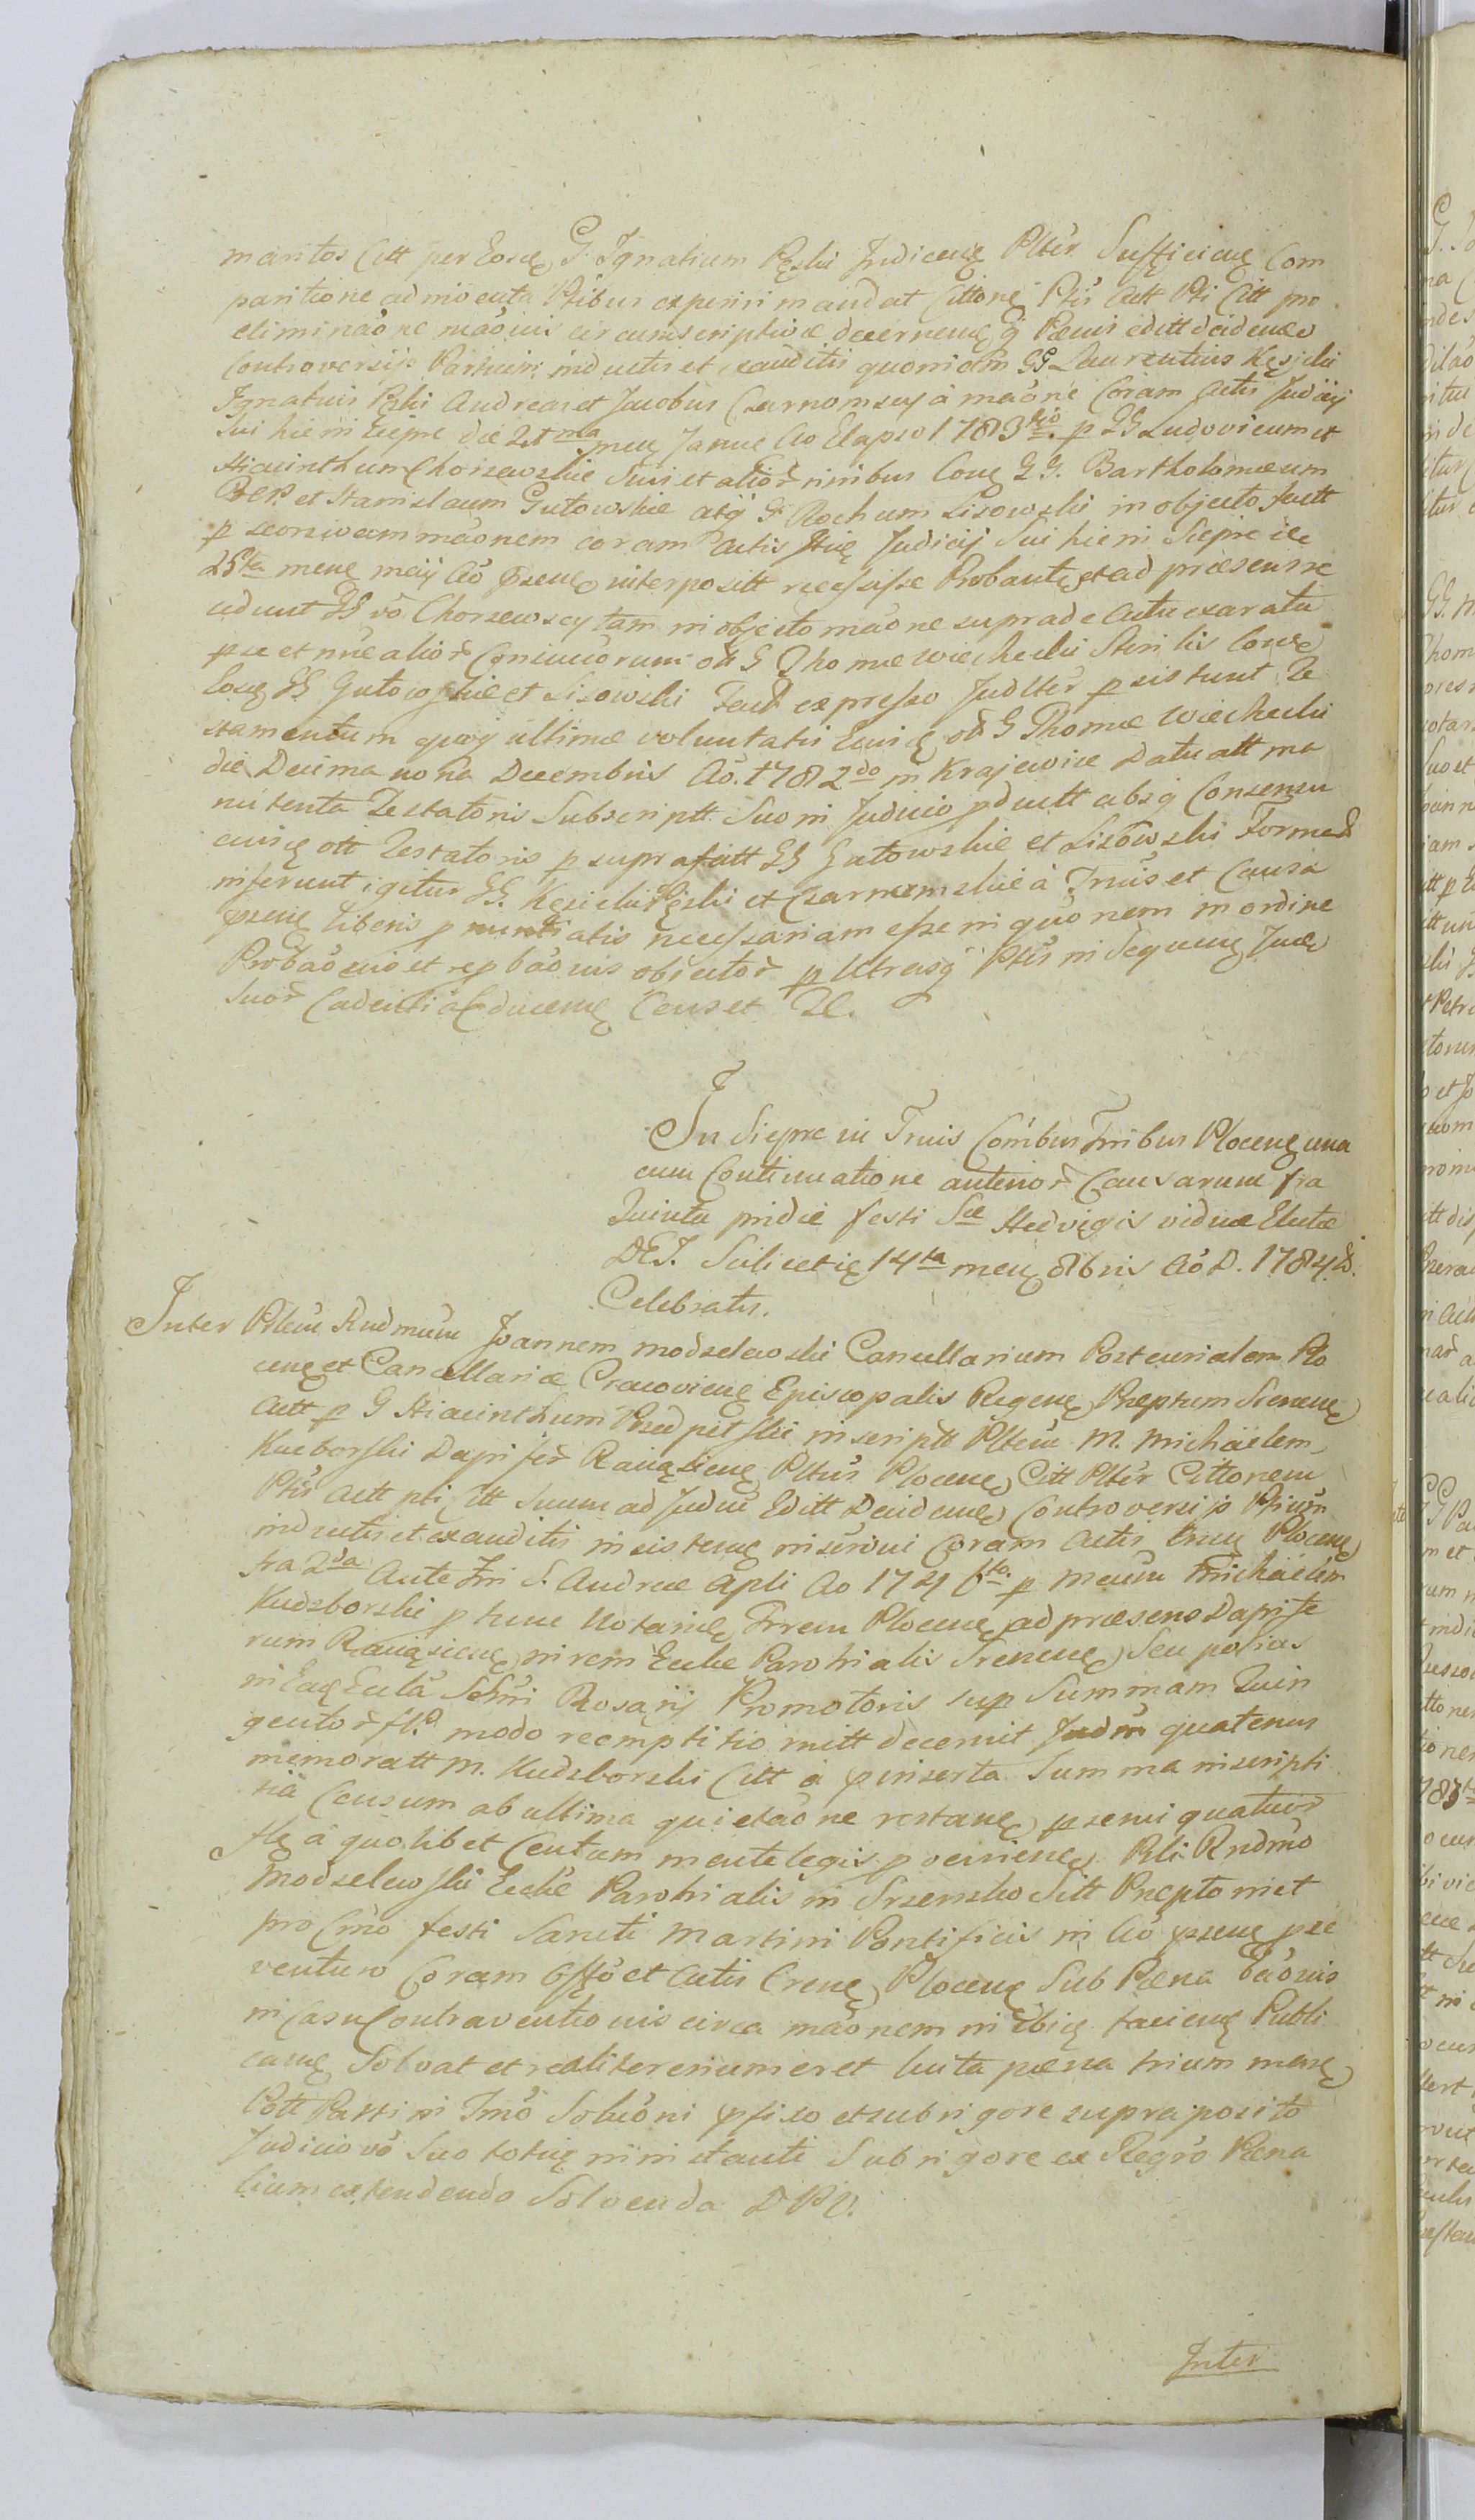 maritos Citt per Eosdę G Ignatium Pęski Judicenę Plter Sufficienę Com
paritione admoventa Ptibus experiri mandat Cittonę Ptis Actt Pti Citt pro
eliminaõne maõnis circumscriptivae decernenę q Paenis editt deidenę
Controversijs Partium inductis et exauditis quoniam GG Laurentius Kęsicki
Ignatius Pęski Andreas et Jacobus Czarnomscy à maõne Coram Actis Judicij
Sui hic in Siepre die 21ma menę Janue Ao Elapso 1783tio p GG Ludovicum et
Hiacinthum Chorzewskie Suis et alior̃ nnibus Conę GG. Bartholomæum
et Stanislaum Gutowskie atq G Rochum Lisowski in objecto factt
p maõnem coram Actis Judicij Sui hic in Siepre die
25ta menę maij Aõ psenę interpositt recessisse Probante et ad præsens re
cedunt GG võ Chorzewscy tam in objecto maõne supra de Actu exarata
p se et nne alior̃ Consuccorum ott G Thomæ Wiechecki Sterilis Conę
Eosdę GG Gutowskie et Lisowski fact expresso Judlter p sistunt Te
stamentum quoq ultimæ voluntatis Eiusdę ott G Thomæ Wiechecki
die Decima nona Decembris Aõ. 1782do in Krajewice Datu att ma
nutenta Testatoris Subscriptt Suo in Judicio pductt absq Consensu
eiusdę ott Testatoris p suprafatt GG Gutowskie et Lisowski Format
inferunt igitur GG. Kęsicki Pęski et Czarnomskie à Tmis et Causa
psenę liberis pnuntiatis necessariam esse inquõnem in ordine
Probaõnis et repbaõnis objector̃ p Utrasq Ptes in Sequenę
Suor̃ Cadentia Educenę Censet Dẽ.
In Siepre in Tmis Combus Tribus Plocenę una
cum Continuatione anterior̃ Causarum fra
Quinta pridie festi Scæ Hedvigis viduæ Electæ
DEJ. Scilicet ię 14ta menę 8bris Aõ D. 1784to.
Celebratis.
Inter Prlem Rndmum Joannem Modzelewski Cancellarium Post curialem Plo
cenę et Cancellariæ Cracovienę Episcopalis Regenę Præptum Srenenę
Actt p G Hiacinthum Przedpełskie inscriptt Pltem M. Michäelem
Kuczborski Dapifer̃ Raciązienę Pltus Plocenę Citt Plter Cittonem
Ptis Actt pti Citt Suum ad Judm Editt Deidenę Controversijs Ptium
inductis et exauditis insistenę inscriõni Coram Actis Crenę Plocenę
fra 2da Ante Fm S. Andreæ Apli Ao 1746to. p Mcum Michäelem
Kudzborski p tunc Notarię Trrem Plocenę ad præsens Dapife
rum Raciązienę in rem Ecclæ Parohialis Srenenę Seu potius
in Eadę Ecclã Sctmi Rosarij Promotoris sup Summam Quin
gentor̃ flp modo reemptitio mitt decernit Judm quatenus
memoratt M. Kudzborski Citt à pinserta Summa inscripti
tia Censum ab ultima quietaõne restanę p semi quatuor
flę à quolibet Centum mente legis pvenienę Prli Rndmo
Modzelewski Ecclæ Parohialis in Srzensko Sitt Præpto in et
pro Cmo festi Sancti Martini Pontificis in Aõ psenę pxe
venturo Coram Offõ et Actis Crenę Plocenę Sub Pæna Baõnis
in Casu Contraventionis circa maõnem in Ibię facienę Publi
canę Solvat et realiter enumeret luita pæna trium menę
Pott Parti in Tmo Soluõni pfixo et sub rigore supraposito
Judicio võ Suo totię inistanti Sub rigore ex Regro Pæna
lium extendendo Solvenda D P V.
Inter